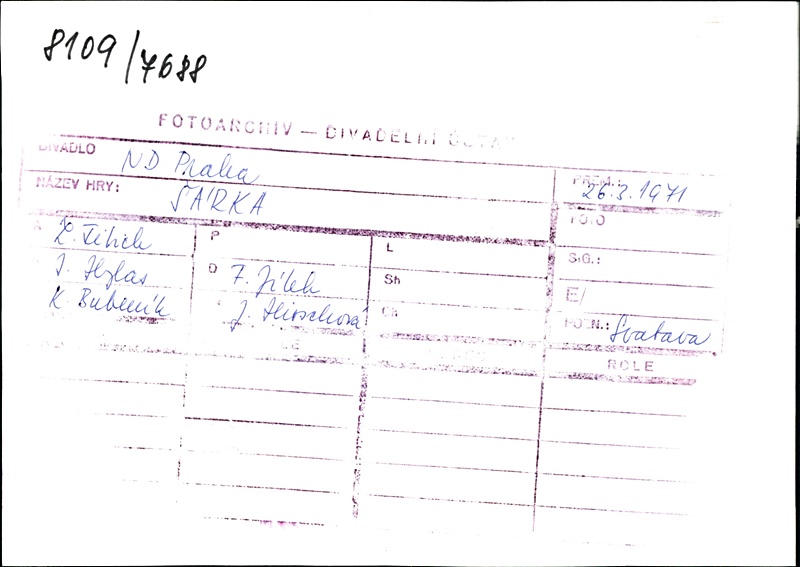 8109/7688
FOTOARCHIV — DIVADELNÍ ÚSTAV
DIVADLO ND Praha
PREM.: 26.3.1971
NÁZEV HRY: ŠÁRKA
FOTO
Z. Fibich
P
L
SIG.:
J. Hylas
O F. Jílek
Sh
E/
K. Bubeník
J. Hirschová
Ch
POZN.: Svatava
ROLE